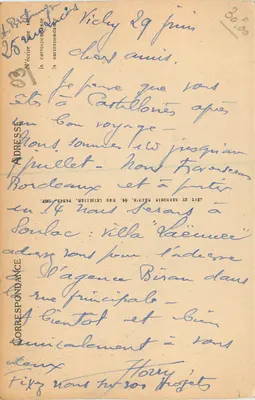 Vichy 29 juin
chers amis.
Je pense que vous
êtes à Castillonès après
un bon voyage -
Nous sommes ici jusqu'au
juillet - Nous
Bordeaux et à partir
en 14 nous serons à
Soulac : villa "Laënnec"
adressez vous pour l'adresse
à l'agence Biran dans
la rue principale -
A bientôt et bien
amicalement à vous
deux
Fixez nous sur vos projets
ADRESSE
CORRESPONDANCE
03
20F00